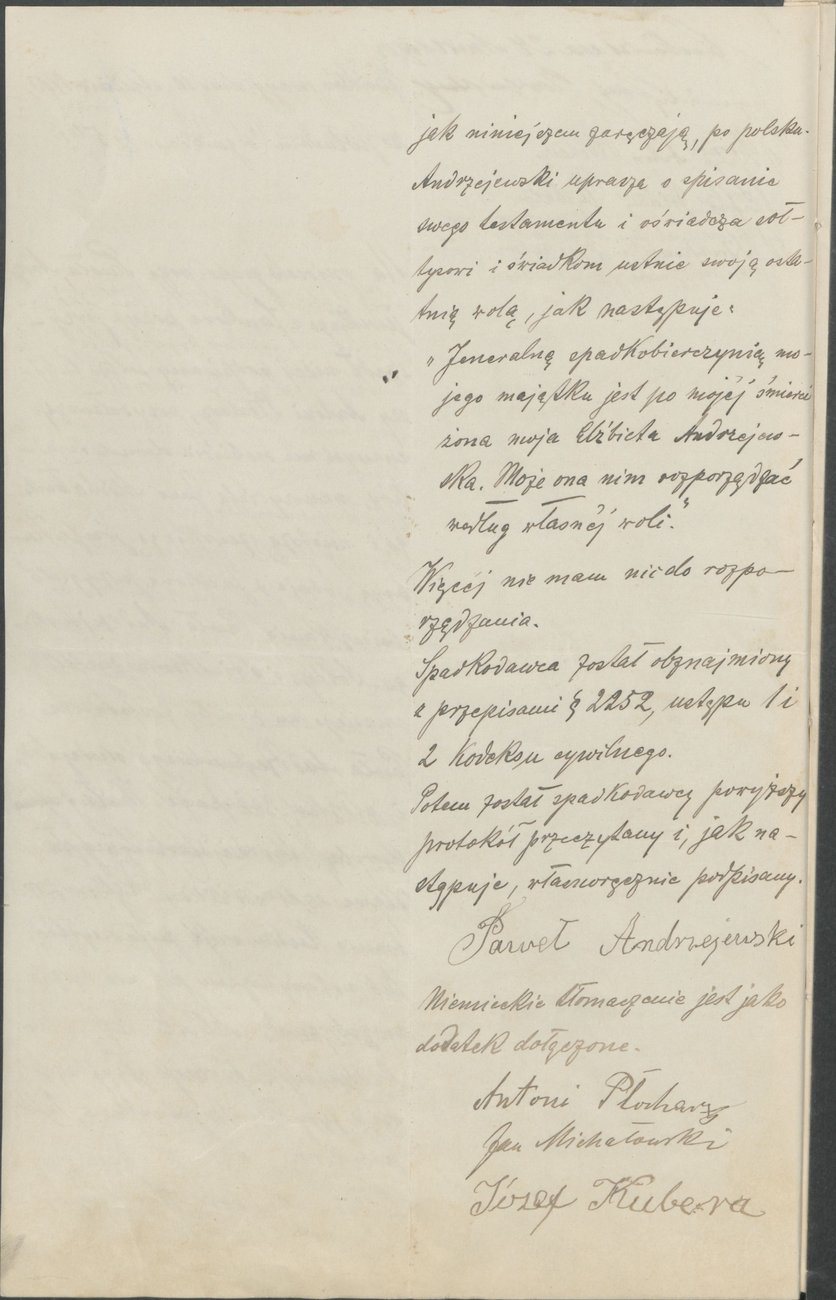 jak niniejszem zaręczają, po polsku.
Andrzejewski uprasza o spisanie
swego testamentu i oświadcza soł-
tysowi i świadkom ustnie swoją osta-
tnią wolą, jak następuje:
„Jeneralną spadkobierczynią mo-
jego majątku jest po mojéj śmierci
żona moja Elżbieta Andrzejew-
ska. Może ona nim rozporządzać
według własnéj woli."
Więcéj nie mam nic do rozpo-
rządzania.
Spadkodawca został obznajmiony
z przepisami § 2252, ustępu 1 i
2 Kodeksu cywilnego.
Potem został spadkodawcy powyższy
protokół przeczytany i, jak na-
stępuje, własnoręcznie podpisany.
Paweł Andrzejewski
Niemieckie tłomaczenie jest jako
dodatek dołączone.
Antoni Płocharz
Jan Michałowski
Józef Kubera